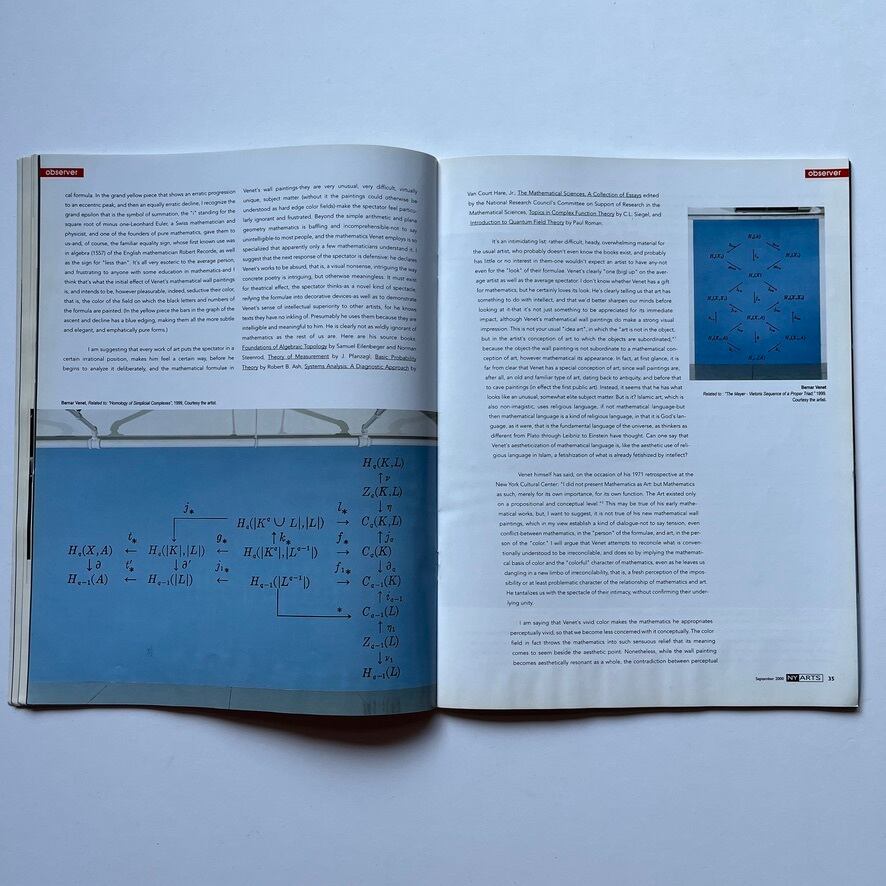 observer
cal formula. In the grand yellow piece that shows an erratic progression
to an eccentric peak, and then an equally erratic decline, I recognize the
grand epsilon that is the symbol of summation, the "i" standing for the
square root of minus one-Leonhard Euler, a Swiss mathematician and
physicist, and one of the founders of pure mathematics, gave them to
us-and, of course, the familiar equality sign, whose first known use was
in algebra (1557) of the English mathematician Robert Recorde, as well
as the sign for "less than". It's all very esoteric to the average person,
and frustrating to anyone with some education in mathematics-and I
think that's what the initial effect of Venet's mathematical wall paintings
is, and intends to be, however pleasurable, indeed, seductive their color,
that is, the color of the field on which the black letters and numbers of
the formula are painted. (In the yellow piece the bars in the graph of the
ascent and decline has a blue edging, making them all the more subtle
and elegant, and emphatically pure forms.)
I am suggesting that every work of art puts the spectator in a
certain irrational position, makes him feel a certain way, before he
begins to analyze it deliberately, and the mathematical formulae in
Venet's wall paintings-they are very unusual, very difficult, virtually
unique, subject matter (without it the paintings could otherwise be
understood as hard edge color fields)-make the spectator feel particu-
larly ignorant and frustrated. Beyond the simple arithmetic and plane
geometry mathematics is baffling and incomprehensible-not to say
unintelligible-to most people, and the mathematics Venet employs is so
specialized that apparently only a few mathematicians understand it. I
suggest that the next response of the spectator is defensive: he declares
Venet's works to be absurd, that is, a visual nonsense, intriguing the way
concrete poetry is intriguing, but otherwise meaningless. It must exist
for theatrical effect, the spectator thinks-as a novel kind of spectacle,
reifying the formulae into decorative devices-as well as to demonstrate
Venet's sense of intellectual superiority to other artists, for he knows
texts they have no inkling of. Presumably he uses them because they are
intelligible and meaningful to him. He is clearly not as wildly ignorant of
mathematics as the rest of us are. Here are his source books:
Foundations of Algebraic Topology by Samuel Eilenberger and Norman
Steenrod, Theory of Measurement by J. Planzagl, Basic Probability
Theory by Robert B. Ash, Systems Analysis: A Diagnostic Approach by
Bernar Venet, Related to: "Homology of Simplicial Complexes", 1999, Courtesy the artist.
H_q(K,L)
↑ν
Z_q(K,L)
j_* l_* ↓η
H_q(|K^q ∪ L|,|L|) → C_q(K,L)
t_* g_* ↑k_* f_* ↑j_q
H_q(X,A) ← H_q(|K|,|L|) ← H_q(|K^q|,|L^{q-1}|) → C_q(K)
↓∂ t'_* ↓∂' j_{1*} f_{1*} ↓∂_q
H_{q-1}(A) ← H_{q-1}(|L|) ← H_{q-1}(|L^{q-1}|) → C_{q-1}(K)
↑i_{q-1}
* C_{q-1}(L)
↑η_1
Z_{q-1}(L)
↓ν_1
H_{q-1}(L)
observer
Van Court Hare, Jr.; The Mathematical Sciences, A Collection of Essays edited
by the National Research Council's Committee on Support of Research in the
Mathematical Sciences, Topics in Complex Function Theory by C.L. Siegel, and
Introduction to Quantum Field Theory by Paul Roman.
It's an intimidating list: rather difficult, heady, overwhelming material for
the usual artist, who probably doesn't even know the books exist, and probably
has little or no interest in them-one wouldn't expect an artist to have any-not
even for the "look" of their formulae. Venet's clearly "one (big) up" on the aver-
age artist as well as the average spectator. I don't know whether Venet has a gift
for mathematics, but he certainly loves its look. He's clearly telling us that art has
something to do with intellect, and that we'd better sharpen our minds before
looking at it-that it's not just something to be appreciated for its immediate
impact, although Venet's mathematical wall paintings do make a strong visual
impression. This is not your usual "idea art", in which the "art is not in the object,
but in the artist's conception of art to which the objects are subordinated,"
because the object the wall painting is not subordinate to a mathematical con-
ception of art, however mathematical its appearance. In fact, at first glance, it is
far from clear that Venet has a special conception of art, since wall paintings are,
after all, an old and familiar type of art, dating back to antiquity, and before that
to cave paintings (in effect the first public art). Instead, it seems that he has what
looks like an unusual, somewhat elite subject matter. But is it? Islamic art, which is
also non-imagistic, uses religious language, if not mathematical language-but
then mathematical language is a kind of religious language, in that it is God's lan-
guage, as it were, that is the fundamental language of the universe, as thinkers as
different from Plato through Leibniz to Einstein have thought. Can one say that
Venet's aestheticization of mathematical language is, like the aesthetic use of reli-
gious language in Islam, a fetishization of what is already fetishized by intellect?
Venet himself has said, on the occasion of his 1971 retrospective at the
New York Cultural Center: "I did not present Mathematics as Art: but Mathematics
as such, merely for its own importance, for its own function. The Art existed only
on a propositional and conceptual level." This may be true of his early mathe-
matical works, but, I want to suggest, it is not true of his new mathematical wall
paintings, which in my view establish a kind of dialogue-not to say tension, even
conflict-between mathematics, in the "person" of the formulae, and art, in the per-
son of the "color." I will argue that Venet attempts to reconcile what is conven-
tionally understood to be irreconcilable, and does so by implying the mathemati-
cal basis of color and the "colorful" character of mathematics, even as he leaves us
dangling in a new limbo of irreconcilability, that is, a fresh perception of the impos-
sibility or at least problematic character of the relationship of mathematics and art.
He tantalizes us with the spectacle of their intimacy, without confirming their under-
lying unity.
I am saying that Venet's vivid color makes the mathematics he appropriates
perceptually vivid, so that we become less concerned with it conceptually. The color
field in fact throws the mathematics into such sensuous relief that its meaning
comes to seem beside the aesthetic point. Nonetheless, while the wall painting
becomes aesthetically resonant as a whole, the contradiction between perceptual
Bernar Venet
Related to : "The Mayer - Vietoris Sequence of a Proper Triad," 1999.
Courtesy the artist.
September 2000 NY ARTS 35